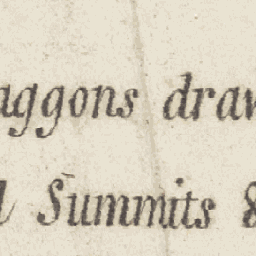 aggons draw
l Summits &